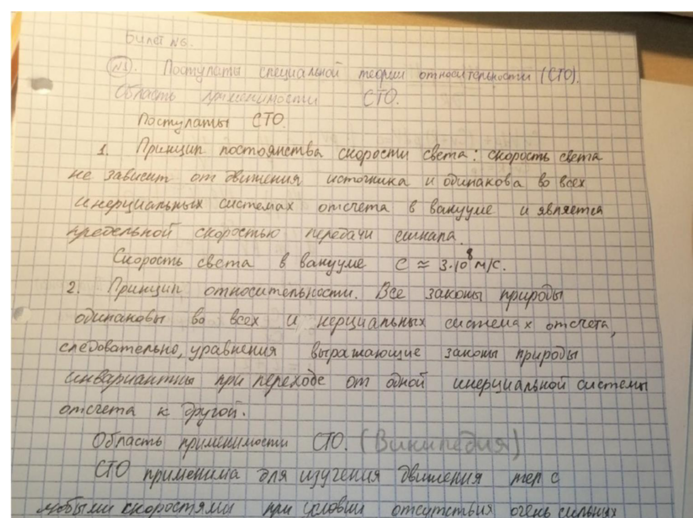 Билет №6.
№1. Постулаты специальной теории относительности (СТО).
Область применимости СТО.
Постулаты СТО.
1. Принцип постоянства скорости света: скорость света
не зависит от движения источника и одинакова во всех
инерциальных системах отсчета в вакууме и является
предельной скоростью передачи сигнала.
Скорость света в вакууме С ≈ 3·10⁸ м/с.
2. Принцип относительности. Все законы природы
одинаковы во всех инерциальных системах отсчета,
следовательно, уравнения выражающие законы природы
инвариантны при переходе от одной инерциальной системы
отсчета к другой.
Область применимости СТО. (Википедия)
СТО применима для изучения движения тел с
любыми скоростями при условии отсутствия очень сильных